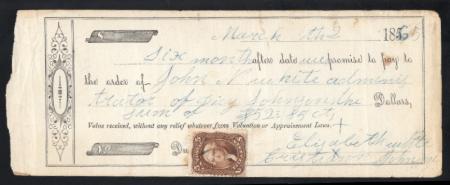 $ March the 2 1865
Six months after date we promise to pay to
the order of John N White adminis
trator of Johnson the Dollars,
Sum of $52.85 cts
Value received, without any relief whatever from Valuation or Appraisement Laws. +
No. Du Elizabeth
Johnson